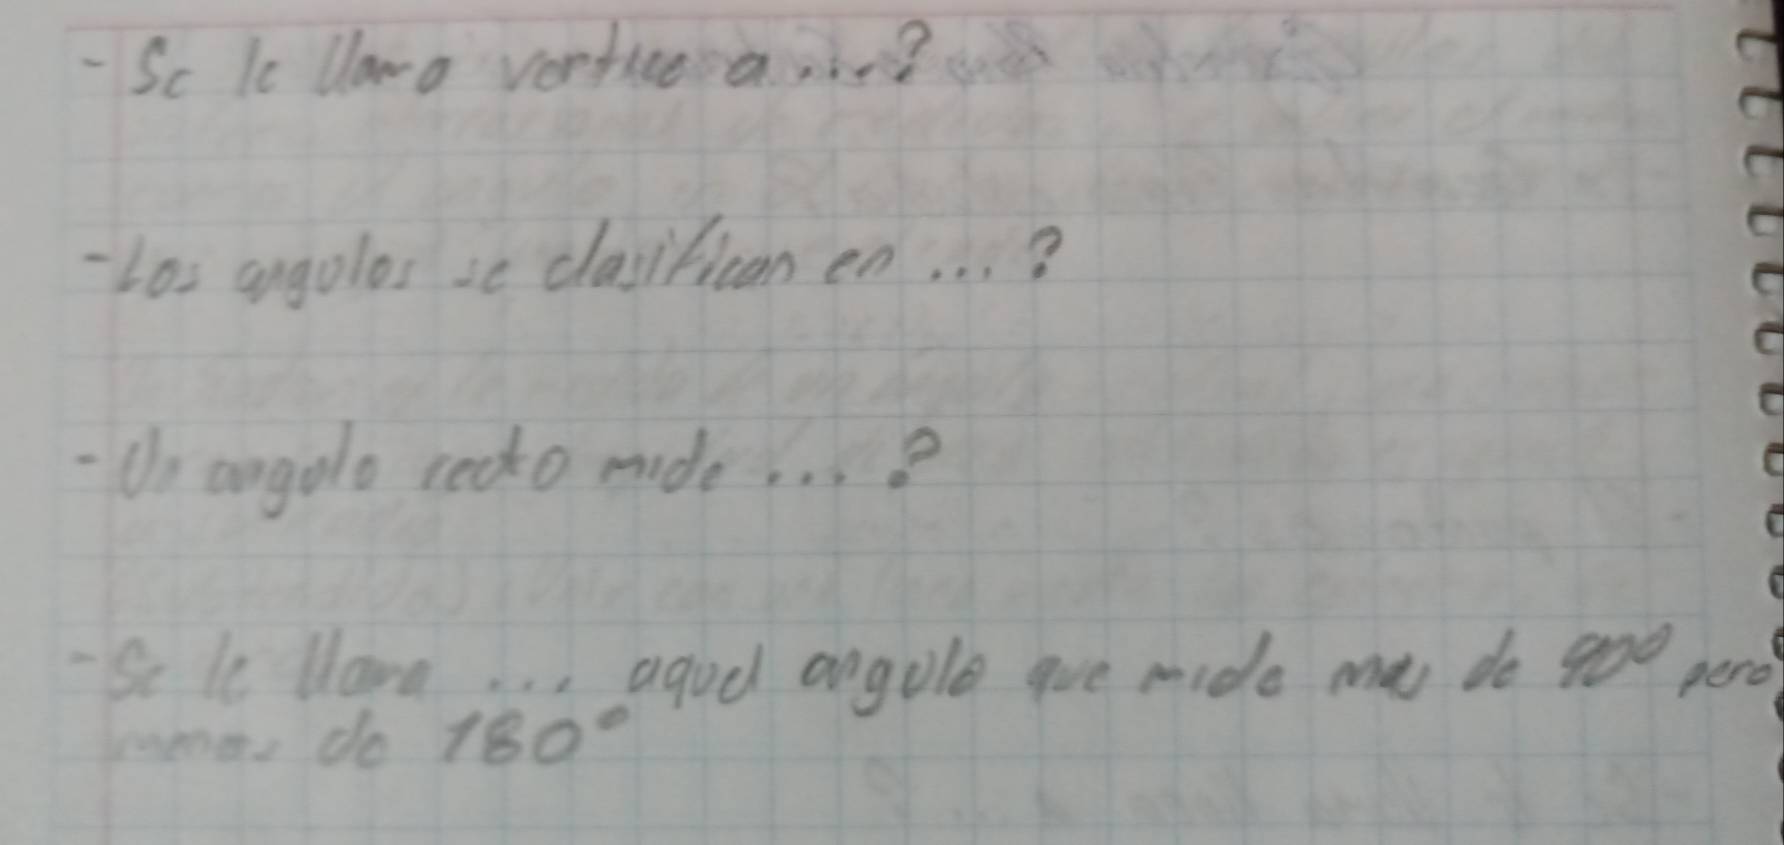 - Se le llama vertice a...?
- Los angulos se clasifican en ...?
- Un angulo recto mide ...?
- Se le llama ... aquel angulo que mide mas de 90° pero
menos de 180°